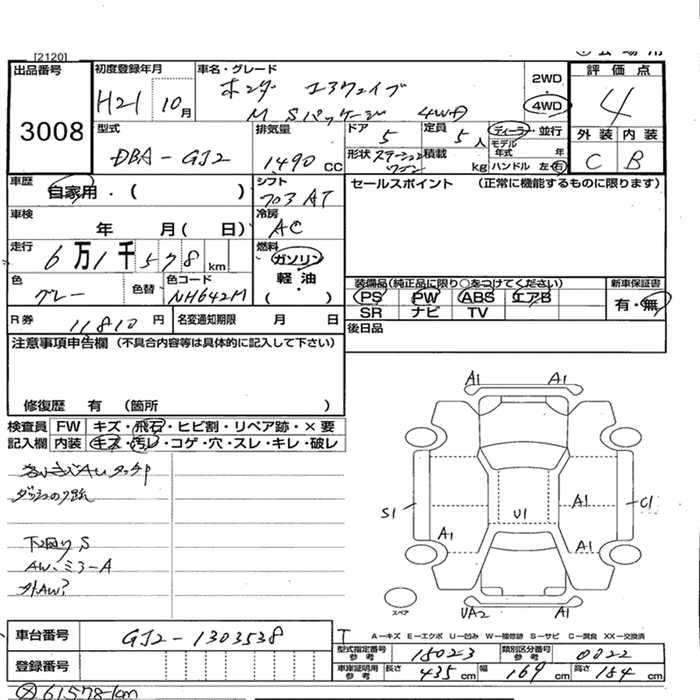 [2120]
出品番号
3008
初度登録年月
H21 10月
車名・グレード
ホンダ エアウェイブ
M Sパッケージ 4WD
2WD
・
4WD
評価点
4
外装 内装
C B
型式
DBA-GJ2
排気量
1490 CC
ドア 5
定員 5人
形状 ステーションワゴン
積載 kg
ディーラ・並行
モデル年式 年
ハンドル 左・右
車歴
自家用・( )
シフト
フロアAT
車検
年 月( 日)
冷房
AC
走行
6万1千578km
燃料
ガソリン
軽・油
( )
色
グレー
色替
色コード
NH642M
R券 11810円
名変通知期限 月 日
セールスポイント (正常に機能するものに限ります)
装備品(純正品に限り○をつけてください)
PS PW ABS エアB
SR ナビ TV
新車保証書
有・無
後日品
注意事項申告欄 (不具合内容等は具体的に記入して下さい)
修復歴 有 (箇所 )
検査員
記入欄
FW キズ・飛石・ヒビ割・リペア跡・×要
内装 キズ・汚レ・コゲ・穴・スレ・キレ・破レ
下回りS
AW、ミラーA
外AW?
A1 A1
S1 U1 A1 C1
A1 A1
スペア
UA2 A1
A-キズ E-エクボ U-凹み W-補修跡 S-サビ C-腐食 XX-交換済
車台番号 GJ2-1303538
登録番号
型式指定番号 参考 15023
類別区分番号 参考 0022
車庫証明用 参考 長さ 435cm 幅 169cm 高さ 154cm
61,578km